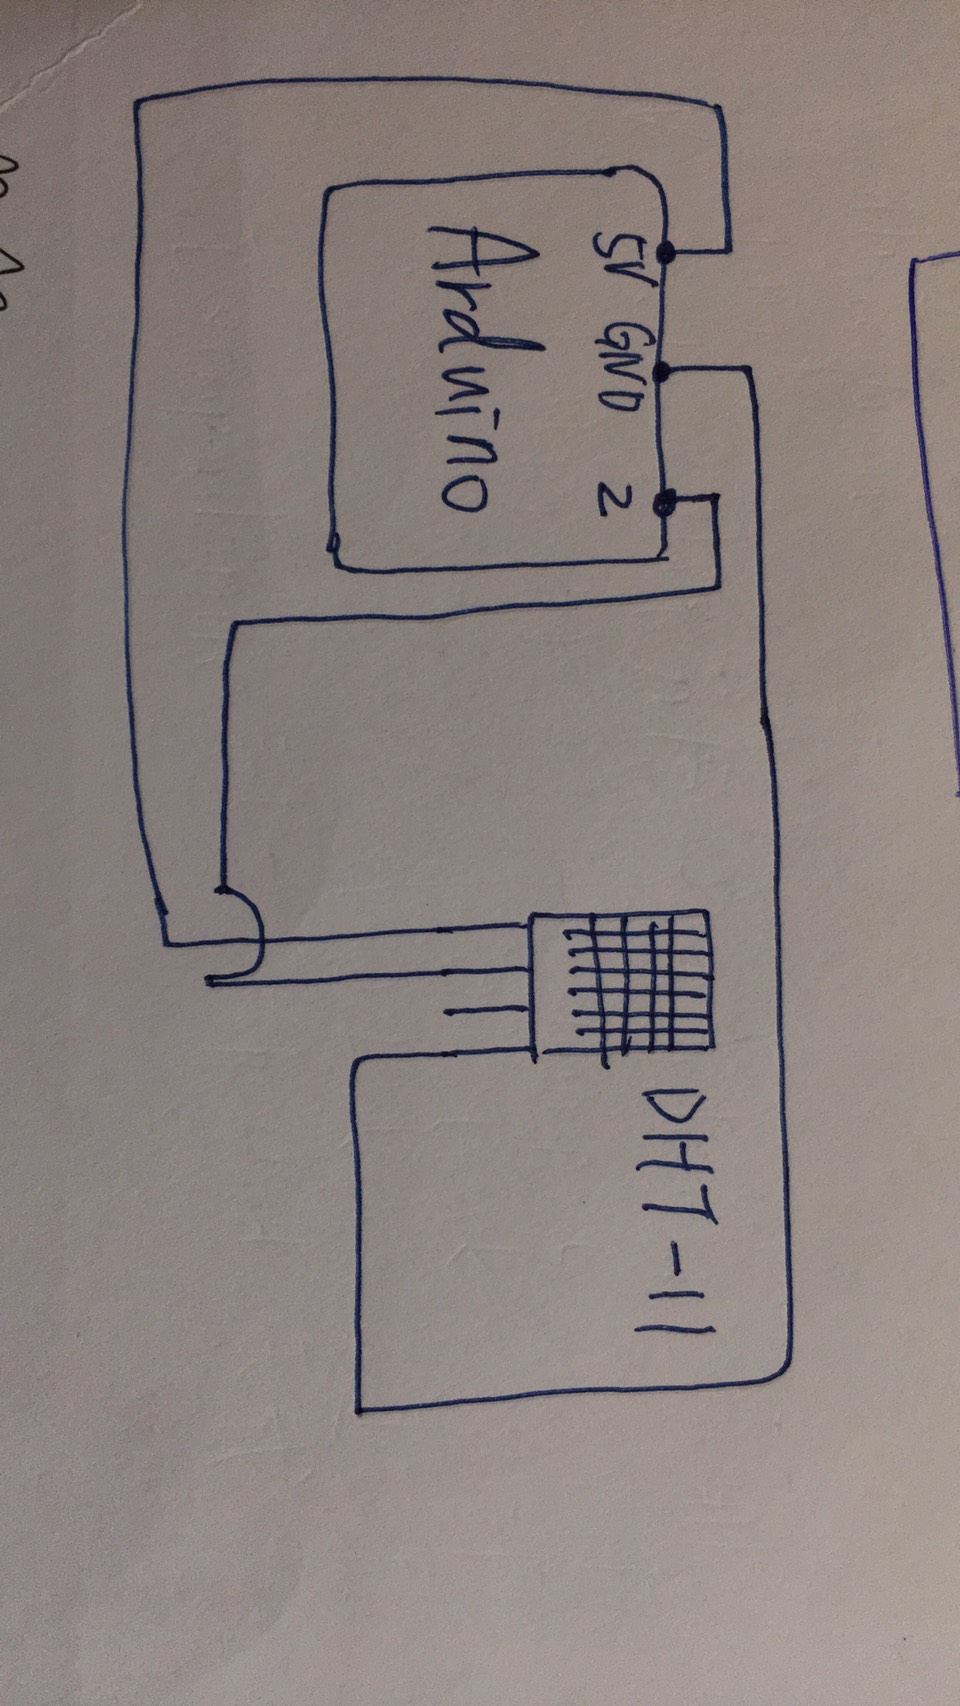 5V GND 2
Arduino
DHT-11